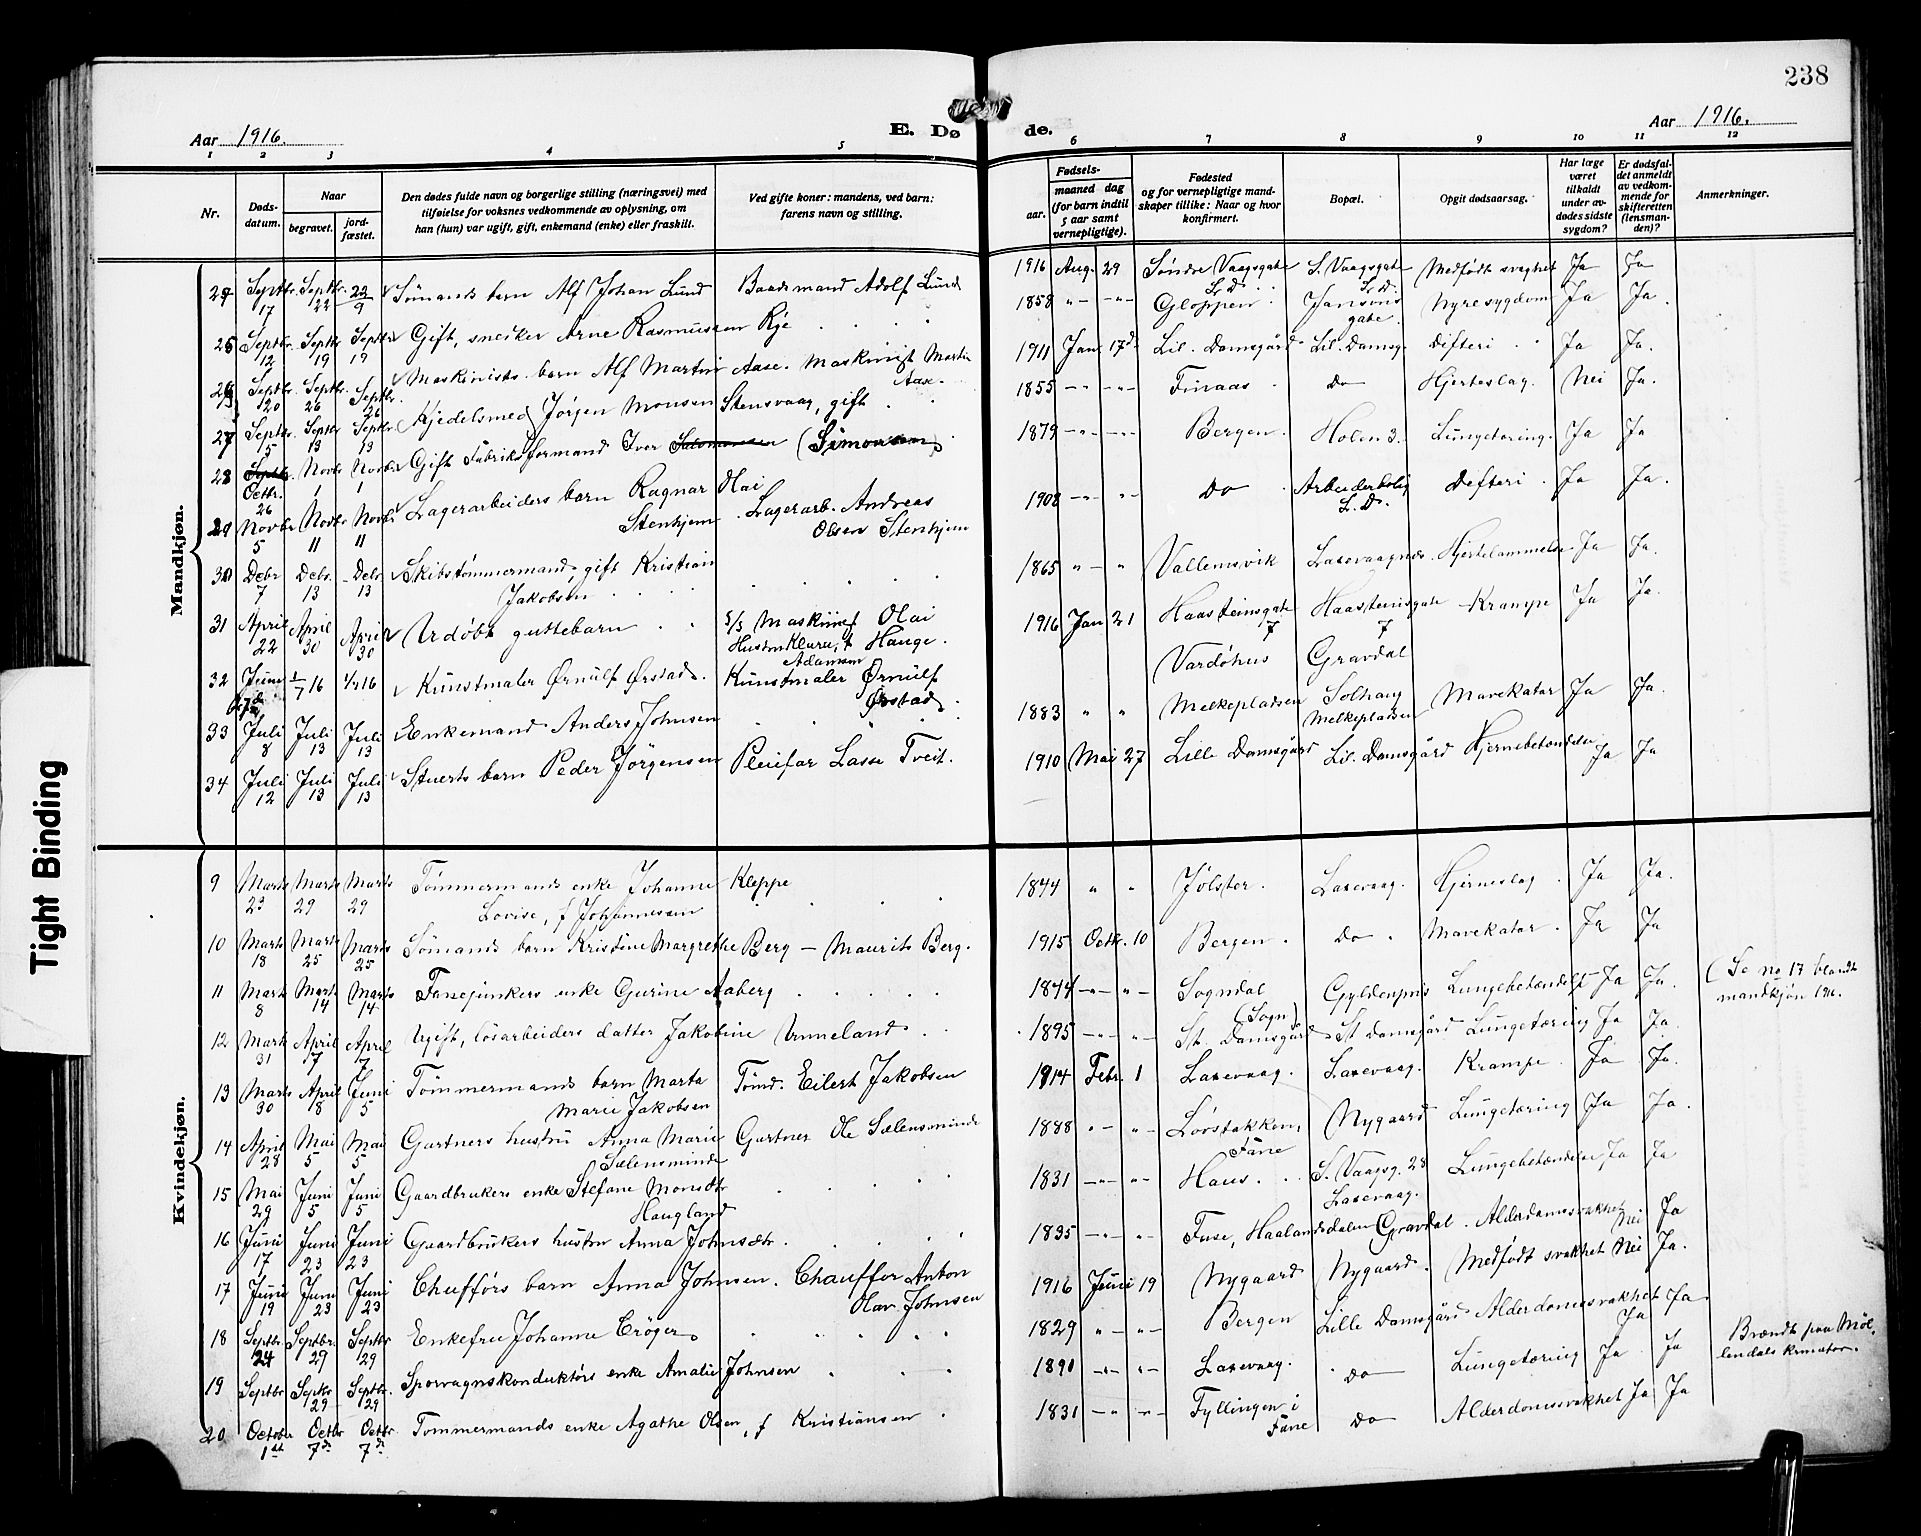 238
Aar 1916. E. Dø de. Aar 1916.
1 2 3 4 5 6 7 8 9 10 11 12
Nr. Døds-datum. Naar begravet. jord-fæstet. Den dødes fulde navn og borgerlige stilling (næringsvei) med tilføielse for voksnes vedkommende av oplysning, om han (hun) var ugift, gift, enkemand (enke) eller fraskilt. Ved gifte koner: mandens, ved barn: farens navn og stilling. Fødsels- aar. maaned dag (for barn indtil 5 aar samt vernepligtige). Fødested og for vernepligtige mand-skaper tillike: Naar og hvor konfirmert. Bopæl. Opgit dødsaarsag. Har læge været tilkaldt under av-dødes sidste sygdom? Er dødsfal-det anmeldt av vedkom-mende for skifteretten (lensman-den)? Anmerkninger.
Mandkjøn.
24 Septbr. 17 Septbr. 22 22/9 Sömands barn Alf Johan Lund Baadsmand Adolf Lund 1916 Aug. 29 Söndre Vaagsgate S. Vaagsgate Medfödt svaghet Ja Ja
25 Septbr. 12 Septbr 19 Septbr 19 Gift, snedker Arne Rasmussen Rye 1858 Gloppen Jansons gate. Nyresygdom Ja Ja.
26 Septbr. 20 Septbr. 26 Septbr. 26 Maskinists barn Alf Martin Aase. Maskinist Martin Aase. 1911 Jan. 17d. Lil. Damsgård Lil. Damsg. Difteri Ja Ja.
27 Septbr. 5 Septbr 13 Septbr. 13 Kjedelsmed Jörgen Monsen Stensvaag, gift 1855 Finaas do Hjerteslag. Nei Ja.
28 Octbr. 26 Novbr 1 Novbr 1 Gift Fabriksformand Iver (Simonsen) 1879 Bergen. Holen 3. Lungetæring. Ja Ja
29 Novbr 5 Novbr 11 Novbr 11 Lagerarbeiders barn Ragnar Olai Stenhjem Lagerarb. Andreas Olsen Stenhjem 1908 Do Arbeiderbolig L. D. Difteri Ja Ja.
30 Debr 7 Debr. 13 Debr. 13 Skibstömmermand, gift Kristian Jakobsen 1865 Vallemsvik Laxevaagnes Hjertelammelse Ja Ja.
31 April 22 April 30 April 30 Udöbt guttebarn S/S Maskinist Olai Hauge. Hustru Klara, f Adamsen 1916 Jan 21 Haasteinsgate 7 Haasteinsgate 7 Krampe Ja Ja.
32 Juni 1/7 16 1/7 16 Kunstmaler Ørnulf Ørstad. Kunstmaler Ørnulf Ørstad. Vardöhus Gravdal
33 Juli 8 Juli 13 Juli 13 Enkemand Anders Johnsen 1883 Melkepladsen Solhaug Melkepladsen Mavekatar Ja Ja.
34 Juli 12 Juli 13 Juli 13 Stuerts barn Peder Jörgensen Pleiefar Lasse Tveit. 1910 Mai 27 Lille Damsgård Lil. Damsgård Hjernebetændelse Ja Ja
Kvindekjøn.
9 Marts 23 Marts 29 Marts 29 Tömmermands enke Johanne Kleppe Lovise, f Johannessen 1844 Jölster. Laxevaag. Hjerneslag Ja Ja.
10 Marts 18 Marts 25 Marts 25 Sömands barn Kristine Margrethe Berg – Maurits Berg. 1915 Octb. 10 Bergen. Do Mavekatar. Ja Ja
11 Marts 8 Marts 14 Marts 14 Fanejunkers enke Gurine Aaberg 1844 Sogndal (Sogn) Gyldenpris Lungebetændelse Ja Ja. (Se no 17 blandt mandkjön 1916.
12 Marts 31 April 7 April 7 Ugift, lösarbeiders datter Jakobine Unneland 1895 St. Damsgård St Damsgård Lungetæring Ja Ja.
13 Marts 30 April 8 Juni 5 Tömmermands barn Marta Marie Jakobsen Tömd. Eilert Jakobsen 1914 Febr. 1 Laxevaag. Laxevaag. Krampe Ja Ja.
14 April 28 Mai 5 Mai 5 Gartners hustru Anna Marie Sælensminde Gartner Ole Sælensminde 1888 Lövstakken, Fane Nygaard Lungetæring Ja Ja.
15 Mai 29 Juni 5 Juni 5 Gaardbrukers enke Stefane Monsdtr Haugland 1831 Haus. S. Vaagsg. 28 Laxevaag. Lungebetændelse Ja Ja
16 Juni 17 Juni 23 Juni 23 Gaardbrukers hustru Anna Johnsdtr. 1835 Fuse, Haalandsdalen Gravdal. Alderdomssvakhet Nei Ja
17 Juni 19 Juni 23 Juni 23 Chufförs barn Anna Johnsen. Chauffor Anton Olav. Johnsen 1916 Juni 19 Nygaard Nygaard. Medfödt svakhet Nei Ja.
18 Septbr. 24 Septbr. 29 Septbr 29 Enkefru Johanne Cröger 1829 Bergen Lille Damsgård Alderdomssvakhet Ja Ja.
19 Septbr Septbr 29 Septbr. 29 Sporvagnskonduktörs enke Amalie Johnsen 1890 Laxevaag. do Lungetæring Ja Ja Brændt paa Möllendals krmator.
20 October 1st Octbr 7de Octbr. 7de Tömmermands enke Agathe Olsen, f Kristiansen 1831 Fyllingen i Fane Do Alderdomssvakhet Ja Ja
Tight Binding